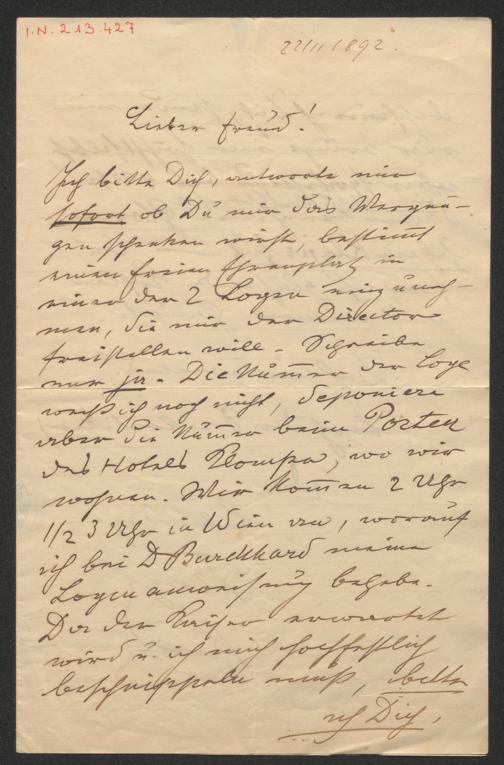 I.N. 213.427
22/11 1892.
Lieber Freund!
Ich bitte Dich, antworte mir
sofort ob Du mir das Vergnü-
gen schenken wirst, bestimt
einen freien Ehrenplatz in
einer der 2 Logen einzuneh-
men, die mir der Director
freistellen will. Schreibe
nur ja. Die Numer der Loge
weiß ich noch nicht, deponiere
aber die Numer beim Portier
des Hotels Klomser, wo wir
wohnen. Wir komen 2 Uhr
1/2 3 Uhr in Wien an, worauf
ich bei D Burckhard meine
Logenanweisung behebe.
Da der Kaiser erwartet
wird u. ich mich hoffestlich
muß, bitte
ich Dich,